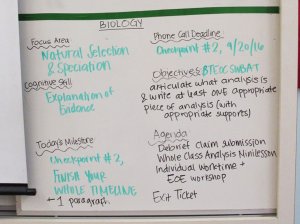 BIOLOGY
Focus Area
Natural Selection
& Speciation
Cognitive Skill
Explanation of
Evidence
Today's Milestone
Checkpoint #2,
FINISH YOUR
WHOLE TIMELINE
+ 1 paragraph
Phone Call Deadline:
Checkpoint #2, 9/20/16
Objectives: BTEOC SWBAT
articulate what analysis is
& write at least one appropriate
piece of analysis (with
appropriate supports)
Agenda
Debrief Claim Submission
Whole Class Analysis Minilesson
Individual Worktime +
EOE workshop
Exit Ticket